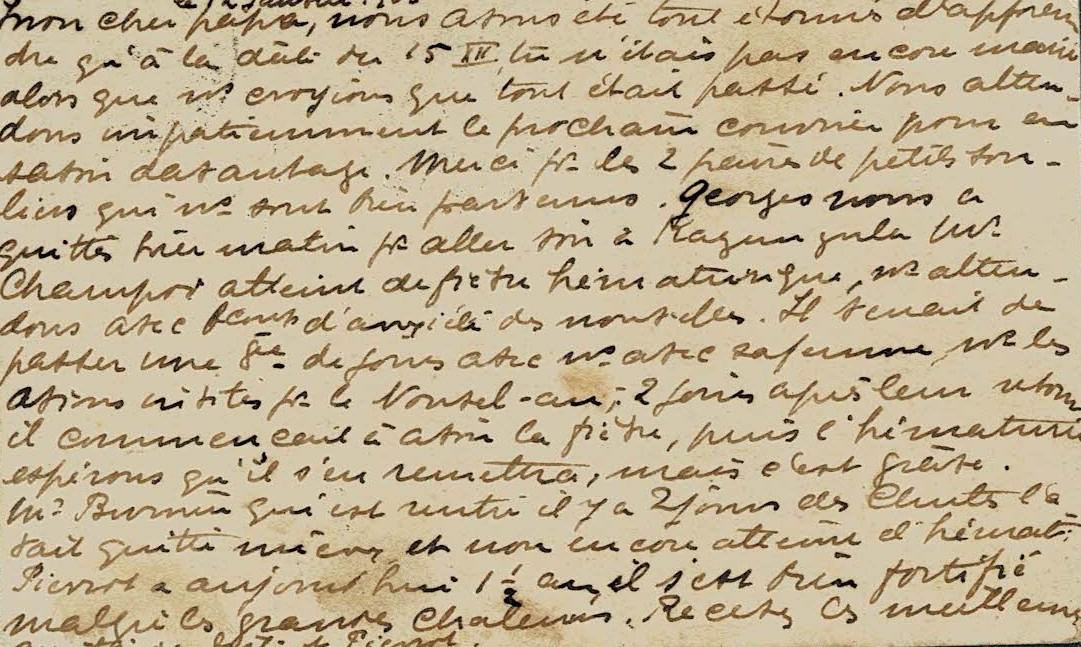 mon cher papa, nous avons été tout étonnés d'appren
dre qu'à la date du 15 XII tu n'étais pas encore marié
alors que ns croyions que tout était passé. Nous atten-
dons impatiemment le prochain courrier pour en
savoir davantage. Merci pr les 2 paires de petits sou-
liers qui ns sont bien parvenus. Georges nous a
quittés hier matin pr aller voir à Kazungula Mr
Champod atteint de fièvre hématurique, ns atten-
dons avec d'anxiété des nouvelles. Il venait de
passer une 8ne de jours avec ns avec sa femme, ns les
avions invités pr le Nouvel-an; 2 jours après leur retour
il commençait à avoir la fièvre, puis l'hématurie
espérons qu'il s'en remettra, mais c'est grave.
Mr qui est rentré il y a 2 jours des Chutes l'a
vait quitté mieux, et non encore atteint d'hémat.
Pierrot a aujourd'hui 1 1/2 an, il s'est bien fortifié
malgré les grandes chaleurs. Recevez les meilleurs
de Pierrot.